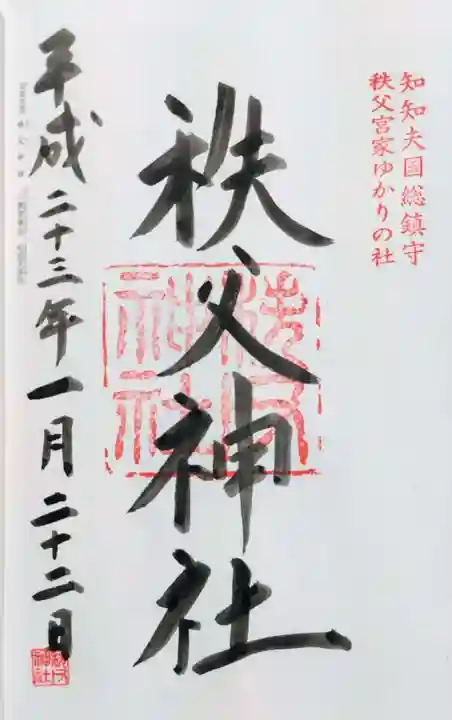 知知夫国総鎮守
秩父宮家ゆかりの社
秩父神社
秩父
神社
平成二十三年一月二十二日
秩父
神社